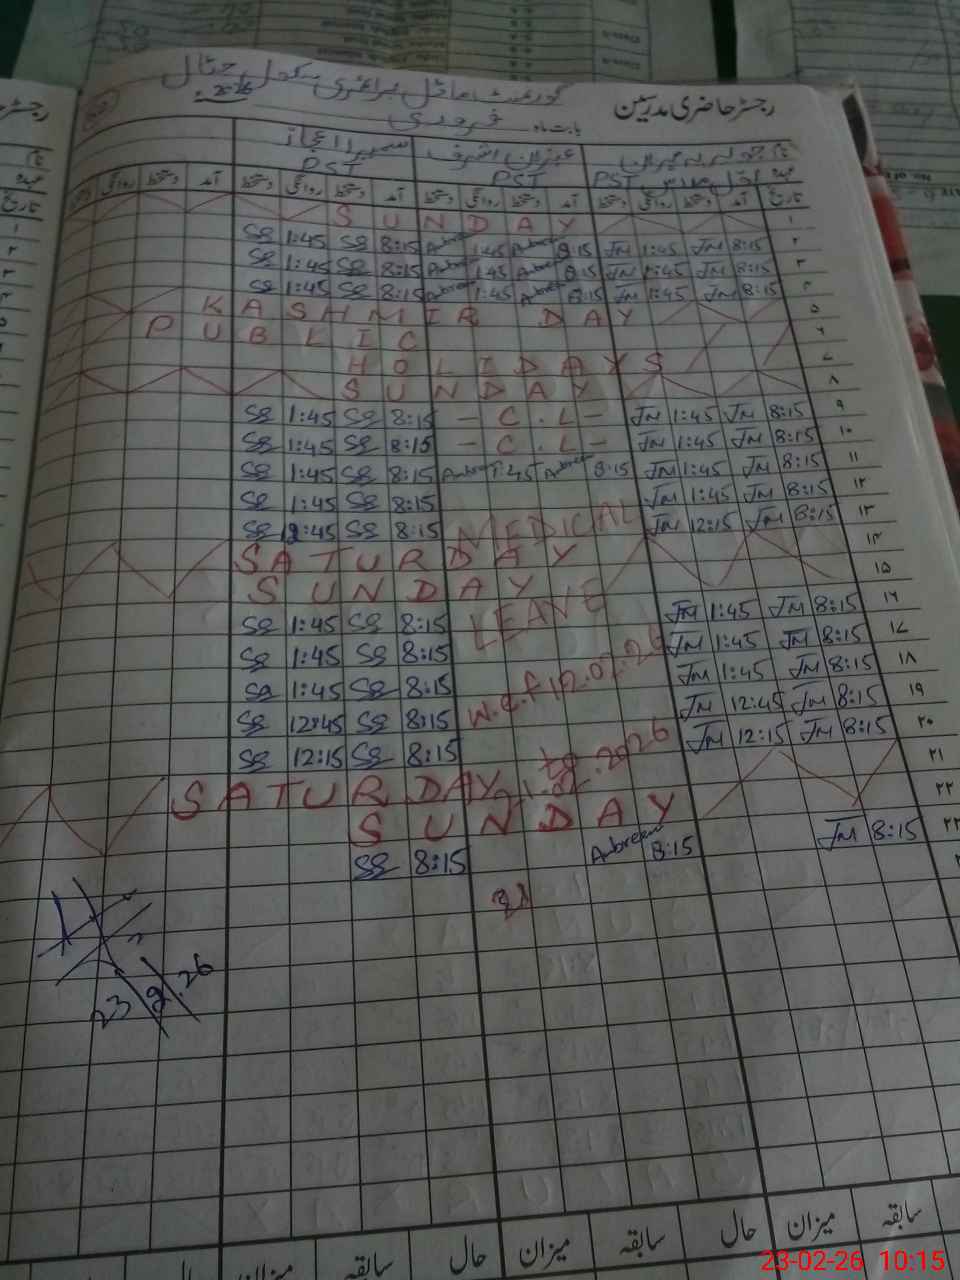 رجسٹر حاضری مدرسین گورنمنٹ ماڈل پرائمری سکول
بابت ماہ فروری 2026
عنبرین اشرف سمیرا اعجاز
PST PST PST
تاریخ آمد دستخط روانگی دستخط آمد دستخط روانگی دستخط آمد دستخط روانگی دستخط آمد دستخط روانگی
۱ SUNDAY
۲ 8:15 JM 1:45 JM 8:15 Aubreen 1:45 Aubreen 8:15 SS 1:45 SS
۳ 8:15 JM 1:45 JM 8:15 Aubreen 1:45 Aubreen 8:15 SS 1:45 SS
۴ 8:15 JM 1:45 JM 8:15 Aubreen 1:45 Aubreen 8:15 SS 1:45 SS
۵ KASHMIR DAY
۶ PUBLIC
۷ HOLIDAYS
۸ SUNDAY
۹ 8:15 JM 1:45 JM - C.L - 8:15 SS 1:45 SS
۱۰ 8:15 JM 1:45 JM - C.L - 8:15 SS 1:45 SS
۱۱ 8:15 JM 1:45 JM 8:15 Aubreen 1:45 Aubreen 8:15 SS 1:45 SS
۱۲ 8:15 JM 1:45 JM 8:15 SS 1:45 SS
۱۳ 8:15 JM 12:15 JM MEDICAL 8:15 SS 12:45 SS
۱۴ SATURDAY
۱۵ SUNDAY
۱۶ 8:15 JM 1:45 JM LEAVE 8:15 SS 1:45 SS
۱۷ 8:15 JM 1:45 JM 8:15 SS 1:45 SS
۱۸ 8:15 JM 1:45 JM w.e.f 12.02.26 8:15 SS 1:45 SS
۱۹ 8:15 JM 12:45 JM 8:15 SS 12:45 SS
۲۰ 8:15 JM 12:15 JM to 8:15 SS 12:15 SS
۲۱ SATURDAY 21.02.2026
۲۲ SUNDAY
۲۳ 8:15 JM 8:15 Aubreen 8:15 SS
23/2.26
سابقہ میزان حال سابقہ میزان حال سابقہ میزان حال
23-02-26 10:15